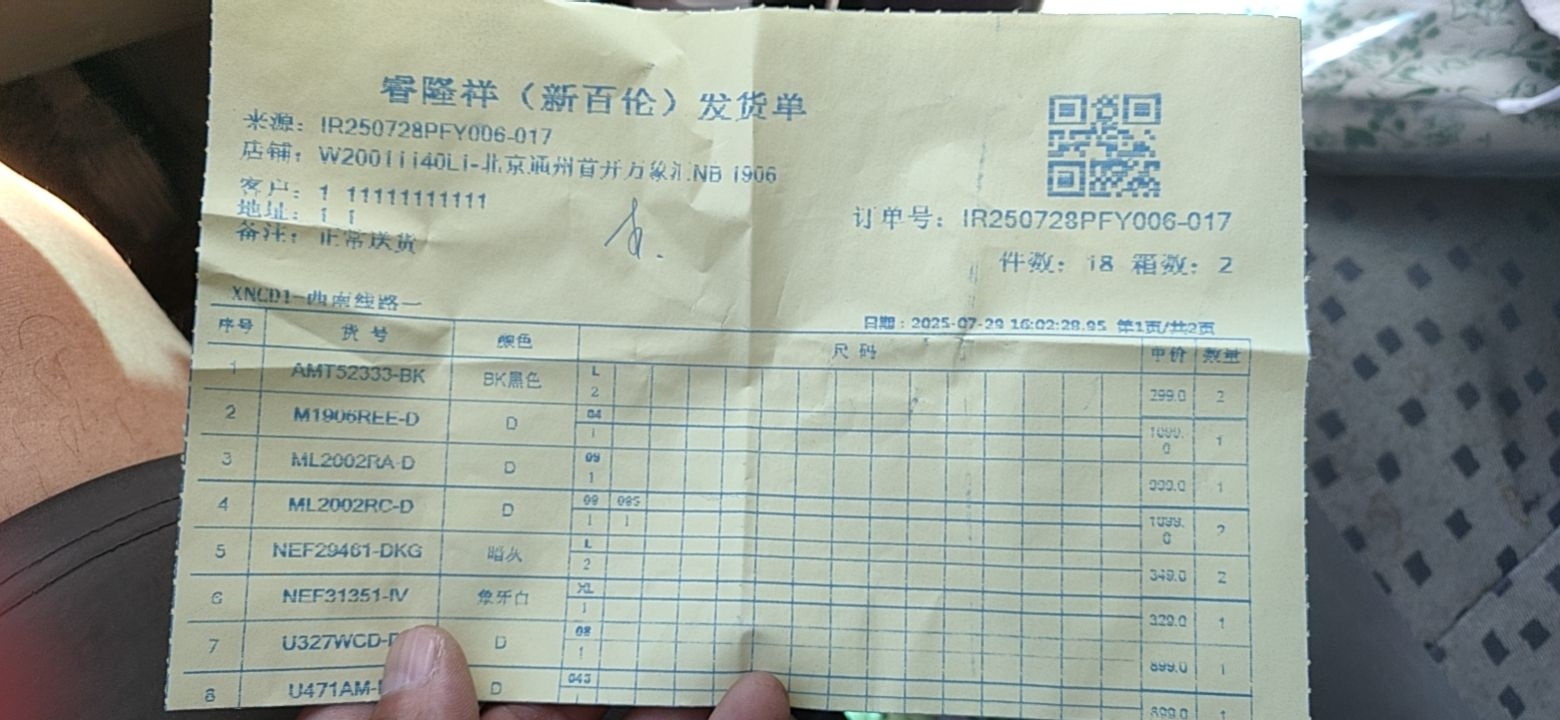 睿隆祥（新百伦）发货单
来源：IR250728PFY006-017
店铺：W20011140L1-北京通州首开万象汇NB 1906
客户：1 11111111111
地址：1 1
备注：正常送货
订单号：IR250728PFY006-017
件数：18 箱数：2
XNCD1-西南线路一
日期：2025-07-29 16:02:28.95 第1页/共2页
序号 货号 颜色 尺码 单价 数量
1 AMT52333-BK BK黑色 L 2 299.0 2
2 M1906REE-D D 04 1 1099.0 1
3 ML2002RA-D D 09 1 999.0 1
4 ML2002RC-D D 08 085 1 1 1099.0 2
5 NEF29461-DKG 暗灰 L 2 349.0 2
6 NEF31351-IV 象牙白 XL 1 329.0 1
7 U327WCD- D 08 1 899.0 1
8 U471AM- D 045 899.0 1